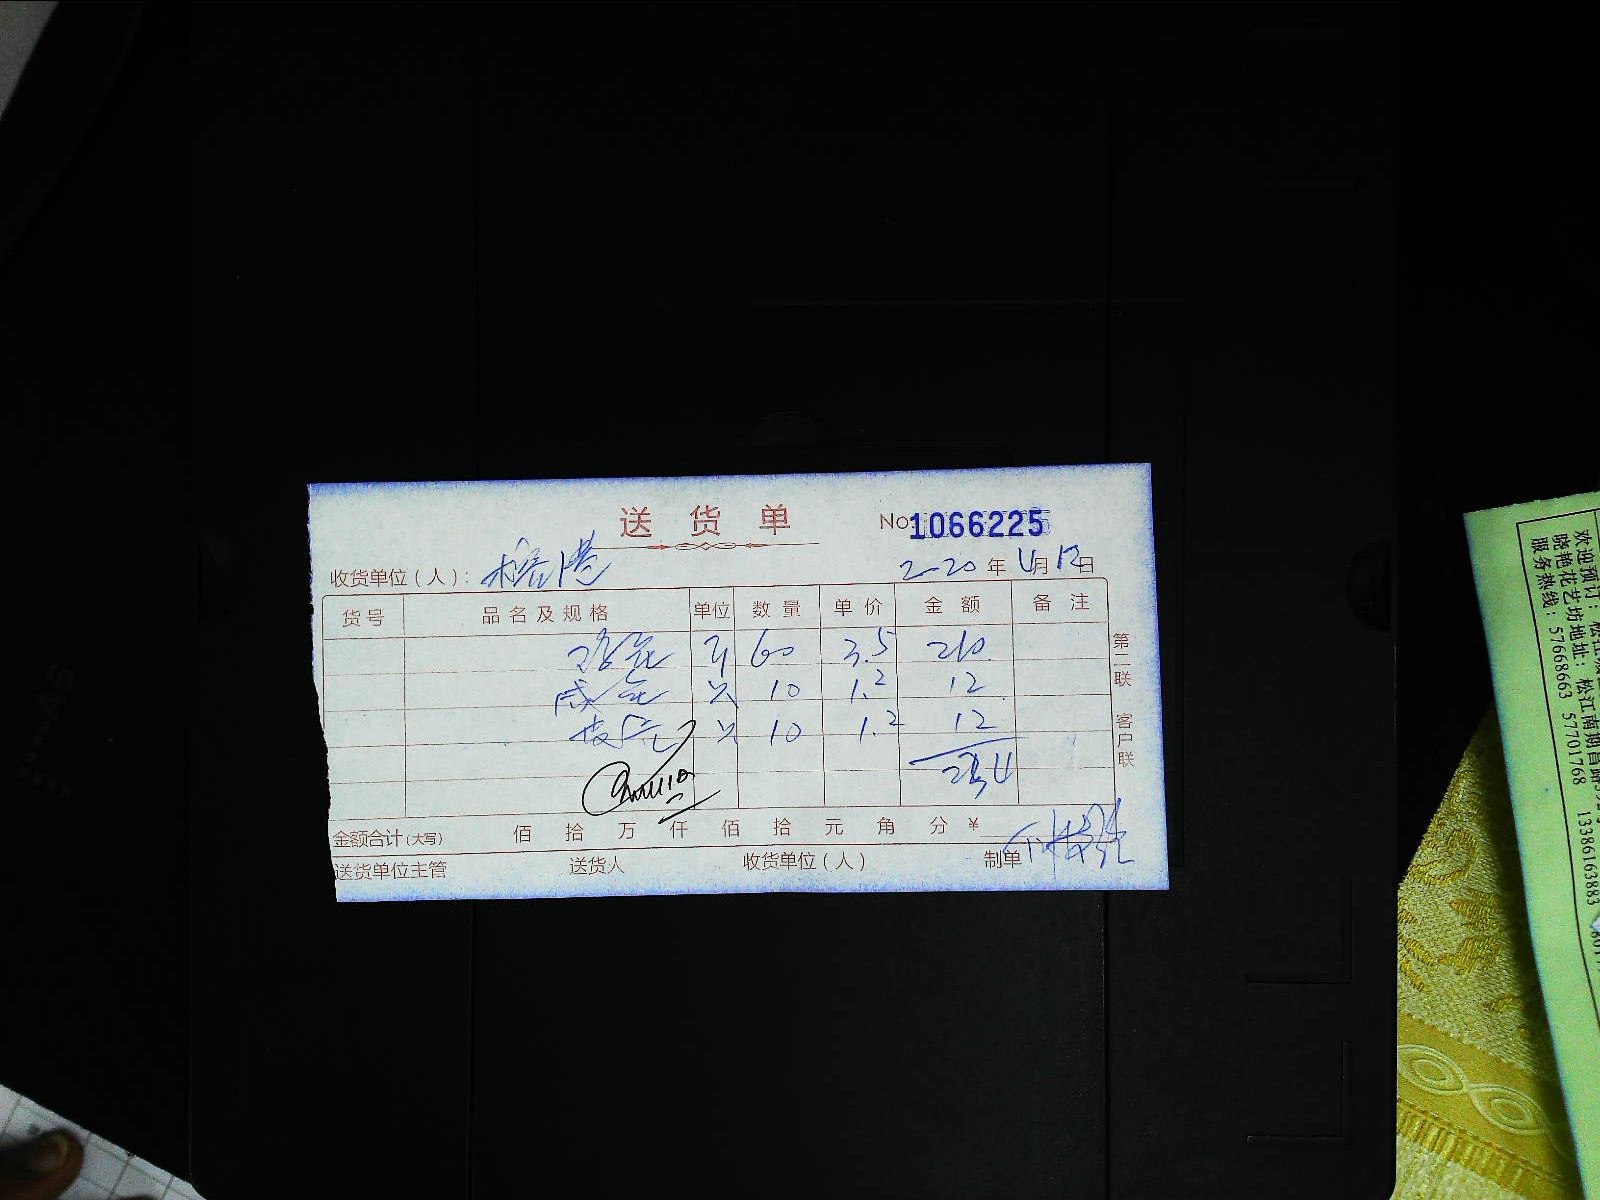 送货单
No 1066225
收货单位(人): 榕港 2020年4月12日
货号 品名及规格 单位 数量 单价 金额 备注
60 3.5 210
只 10 1.2 12
只 10 1.2 12
234
金额合计(大写) 佰 拾 万 仟 佰 拾 元 角 分 ¥
送货单位主管 送货人 收货单位(人) 制单
第二联 客户联
欢迎预订:
晓艳花艺坊地址: 松江南期昌路
服务热线: 57668663 57701768 13386163883